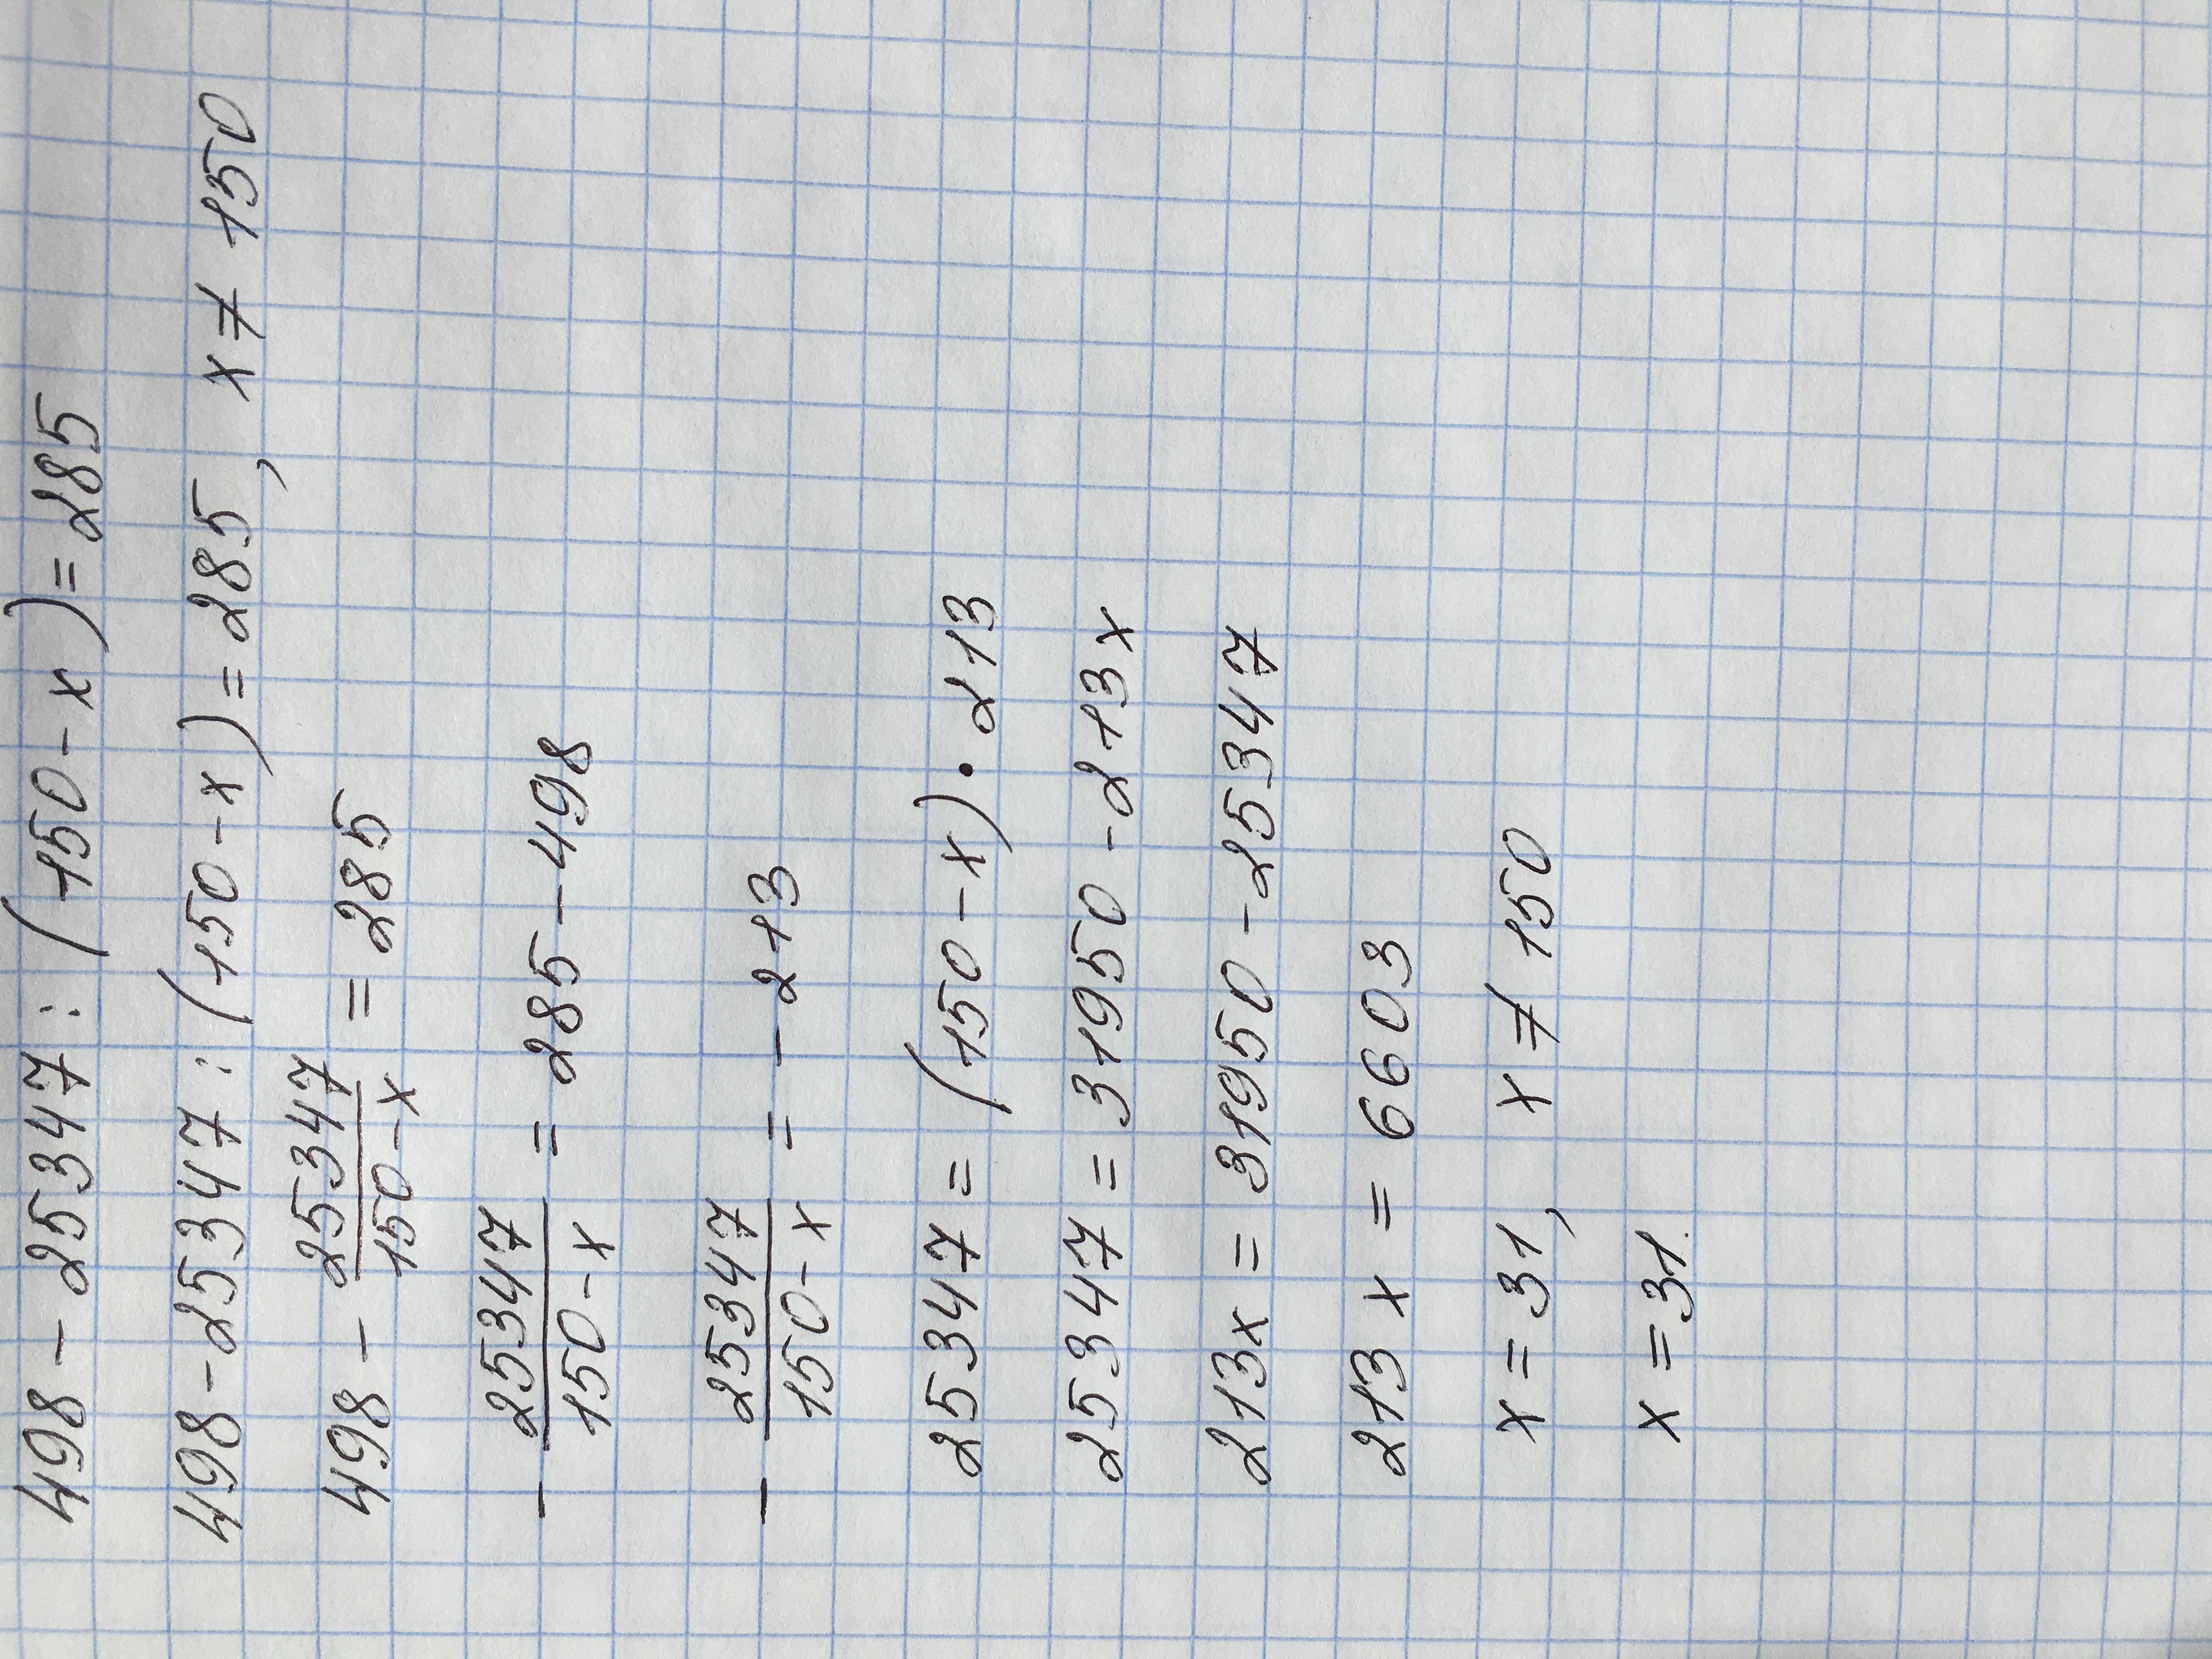 498 - 25347 : (150 - x) = 285
498 - 25347 : (150 - x) = 285, x ≠ 150
498 - 25347/(150 - x) = 285
- 25347/(150 - x) = 285 - 498
- 25347/(150 - x) = - 213
25347 = (150 - x) · 213
25347 = 31950 - 213x
213x = 31950 - 25347
213x = 6603
x = 31, x ≠ 150
x = 31.